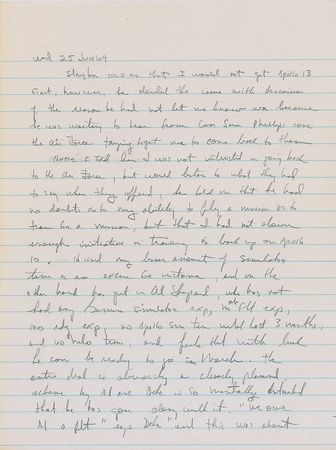 Wed 25 Jun 69
Slayton told me that I would not get Apollo 13
First, however, he clouded the issue with discussion
of the reason he had not let me know was because
he was waiting to hear from Gen Sam Phillips
the Air Force trying to get me to come back to
. I told him I was not interested in going back
to the Air Force, but would listen to what they had
to say when they offered. he told me that he had
no doubts as to my ability to fly a mission or to
train for a mission, but that I had not shown
enough initiative in training as back up on Apollo
10. He used my amount of simulator
time as an excuse for instance, and on the
other hand has put in Al Shepard, who has not
had any Gemini simulator exp, no exp,
no exp, no Apollo sim time until last 3 months,
and no helo time, and feels that with luck
he can be ready to go in March. The
entire deal is obviously a cleverly planned
scheme by Al and Deke is so mentally
that he has gone along with it. "We owe
Al a flt" says Deke and this was about